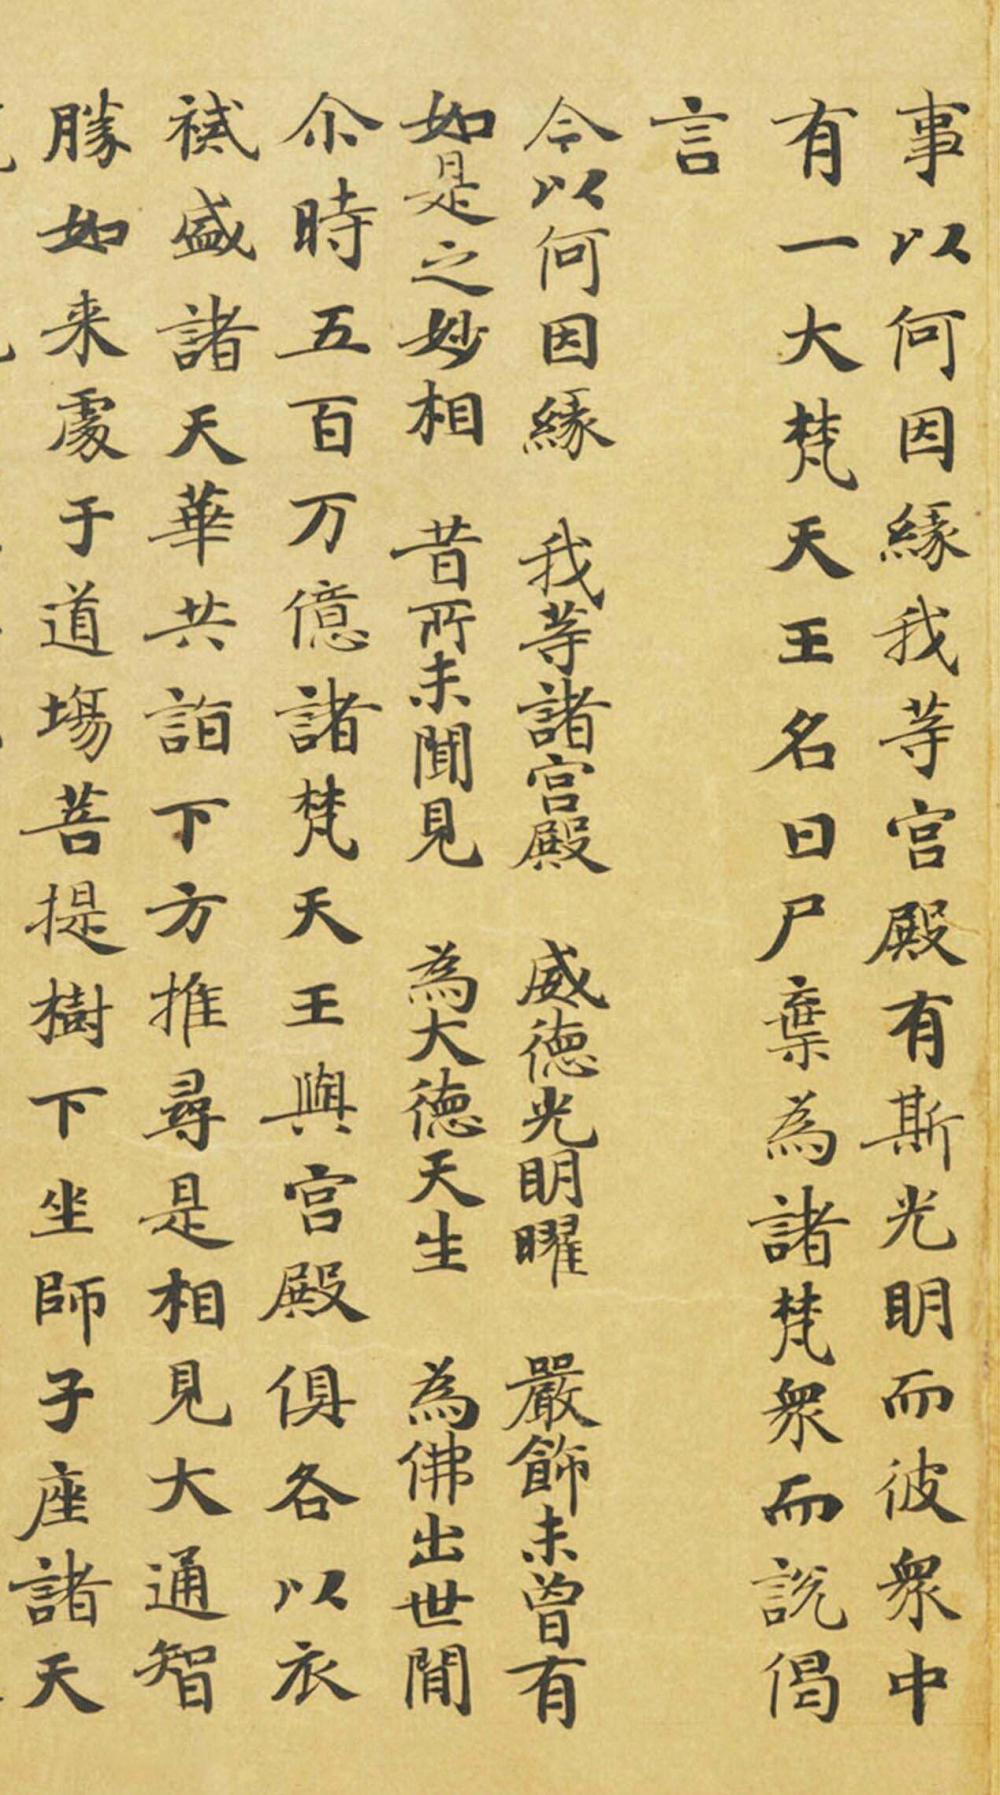 事以何因緣我等宮殿有斯光明而彼衆中
有一大梵天王名曰尸棄為諸梵衆而說偈
言
今以何因緣　我等諸宮殿　威德光明曜　嚴飾未曾有
如是之妙相　昔所未聞見　為大德天生　為佛出世間
尒時五百万億諸梵天王與宮殿俱各以衣
裓盛諸天華共詣下方推尋是相見大通智
勝如来處于道場菩提樹下坐師子座諸天